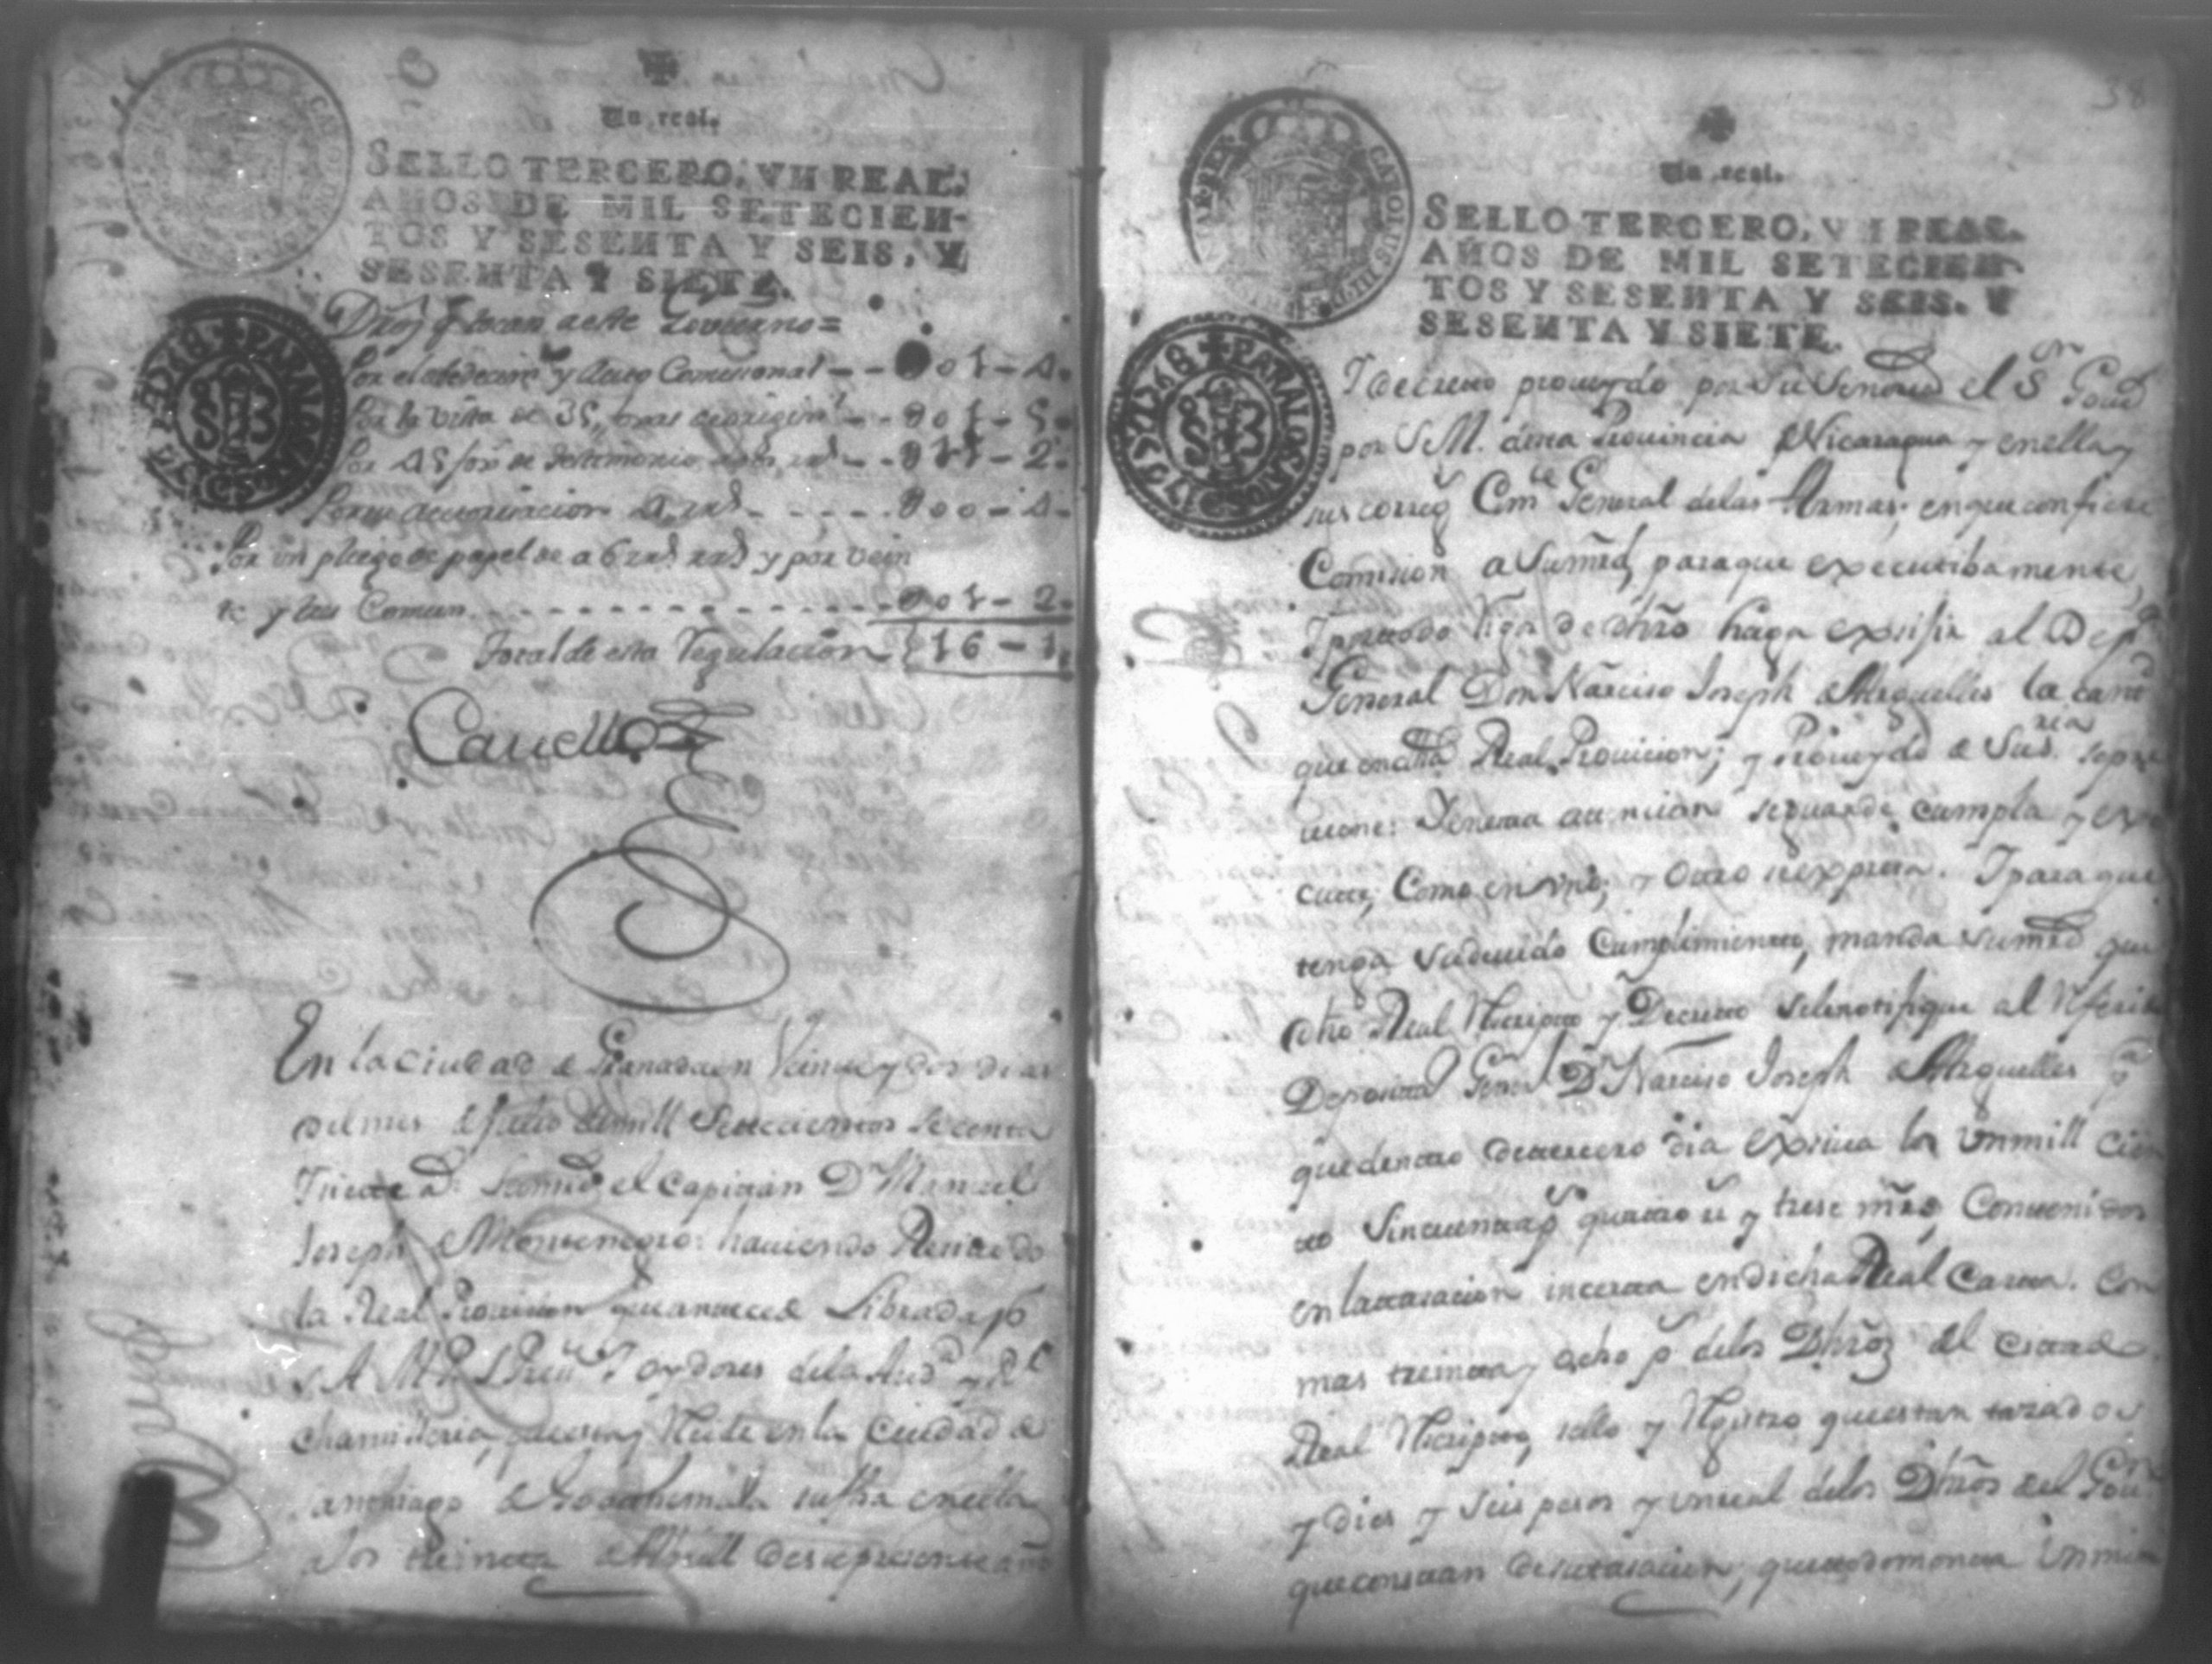 Un real.
SELLO TERCERO, VN REAL.
AÑOS DE MIL SETECIEN-
TOS Y SESENTA Y SEIS, Y
SESENTA Y SIETE.
Dros q̃ tocan a este Govierno=
Por el obedecim.to y auto Comisional -- 001-4.
Por la vista de 35, -- 001-5.
Por 45 fox.s de testimonio -- 011-2.
000-4.
Por un pliego de papel de a 6 rr.s y por vein
te y tres Comun 001-2.
Total de esta Regulacion 16-1.
En la Ciudad de Granada en Veinte y dos dias
del mes de Julio de mill Setecientos Secenta
y siete a.s Su mrd el Capitan Dn Manuel
Joseph de Montenegro: haviendo Recevido
la Real Provicion que antecede Librada p.r
S A M P S Prec.te Y oydores de la Aud.a y R.l
Chancilleria, que esta y Recide en la Ciudad de
Santhiago de Goathemala su fha en ella
a los treinta de Abrill de este precente año
38
Un real.
SELLO TERCERO, VN REAL.
AÑOS DE MIL SETECIEN-
TOS Y SESENTA Y SEIS. Y
SESENTA Y SIETE.
CAROLUS III
PARA LOS AÑOS
Y decreto proveydo por su Señoria el S.or Gov.or
por S M. de esta Provincia de Nicaragua y en ella y
sus correg.s Com.te General de las Armas; en que confiere
Comicion a Su mrd, para que executibamente,
Y por todo Rigor de dro haga exsivir al Dep.o
General Don Narciso Joseph de Arguelles la cant.d
que en dha Real Provicion; y Proveydo de Su S.ria se pre
viene: Y en esta atencion se guarde, cumpla y exe
cute, Como en uno; y Otro se expresa. Y para que
tenga su devido Cumplimiento, manda su mrd, que
dho Real Rescripto y Decreto se le notifique al Referido
Deposit.o Gen.l Dn Narciso Joseph de Arguelles p.a
que dentro de tercero dia exsiva los un mill cien
to Sincuenta p.s quatro r.s y trese mrs, Contenidos
en la tasacion incerta en dicha Real Carta. Con
mas treinta y ocho p.s de los Dhros del citado
Real Rescripto, sello y Registro que estan tazados
y dies y seis pesos y un real de los Dhros del Gov.no
que constan de su tasacion, que todo monta Un mill